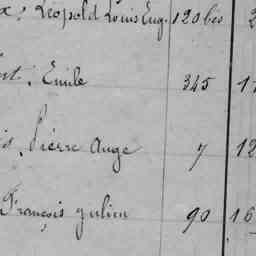 Leopold Louis Eug. 120 bis 2
Emile 345 1
Pierre Ange 7 12
François Julien 90 16